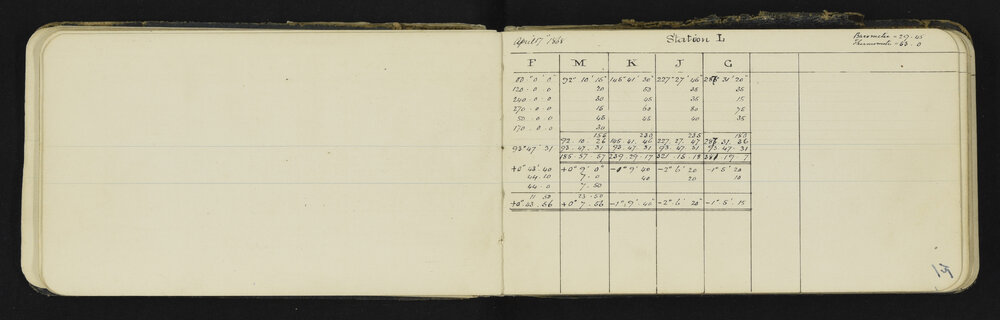 April 17 1868 Station L Barometer = 29.45
Thermometer = 63.0
F M K J G
80° 0' 0" 92° 10' 15" 145° 41' 30" 227° 27' 45" 287° 31' 20"
120 . 0 . 0 20 50 35 35
240 . 0 . 0 30 45 35 15
270 . 0 . 0 15 60 80 75
50 . 0 . 0 45 45 40 35
170 . 0 . 0 30
155 230 235 180
92 . 10 . 26 145 . 41 . 46 227 . 27 . 47 287 . 31 . 36
93° 47' 31 93 . 47 . 31 93 . 47 . 31 93 . 47 . 31 93 . 47 . 31
185 . 57 . 57 239 . 29 . 17 321 . 15 . 18 381 . 19 . 7
+0° 43' 40 +0° 9' 0" -1° 9' 40 -2° 6' 20 -1° 5' 20
44 . 10 7 . 0 40 20 10
44 . 0 7 . 50
11 . 50 23 . 50
+0° 43 . 56 +0° 7 . 56 -1° 9' 40" -2° 6' 20" -1° 5' 15